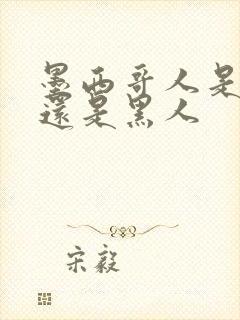 墨西哥人是
还是黑人
宋毅